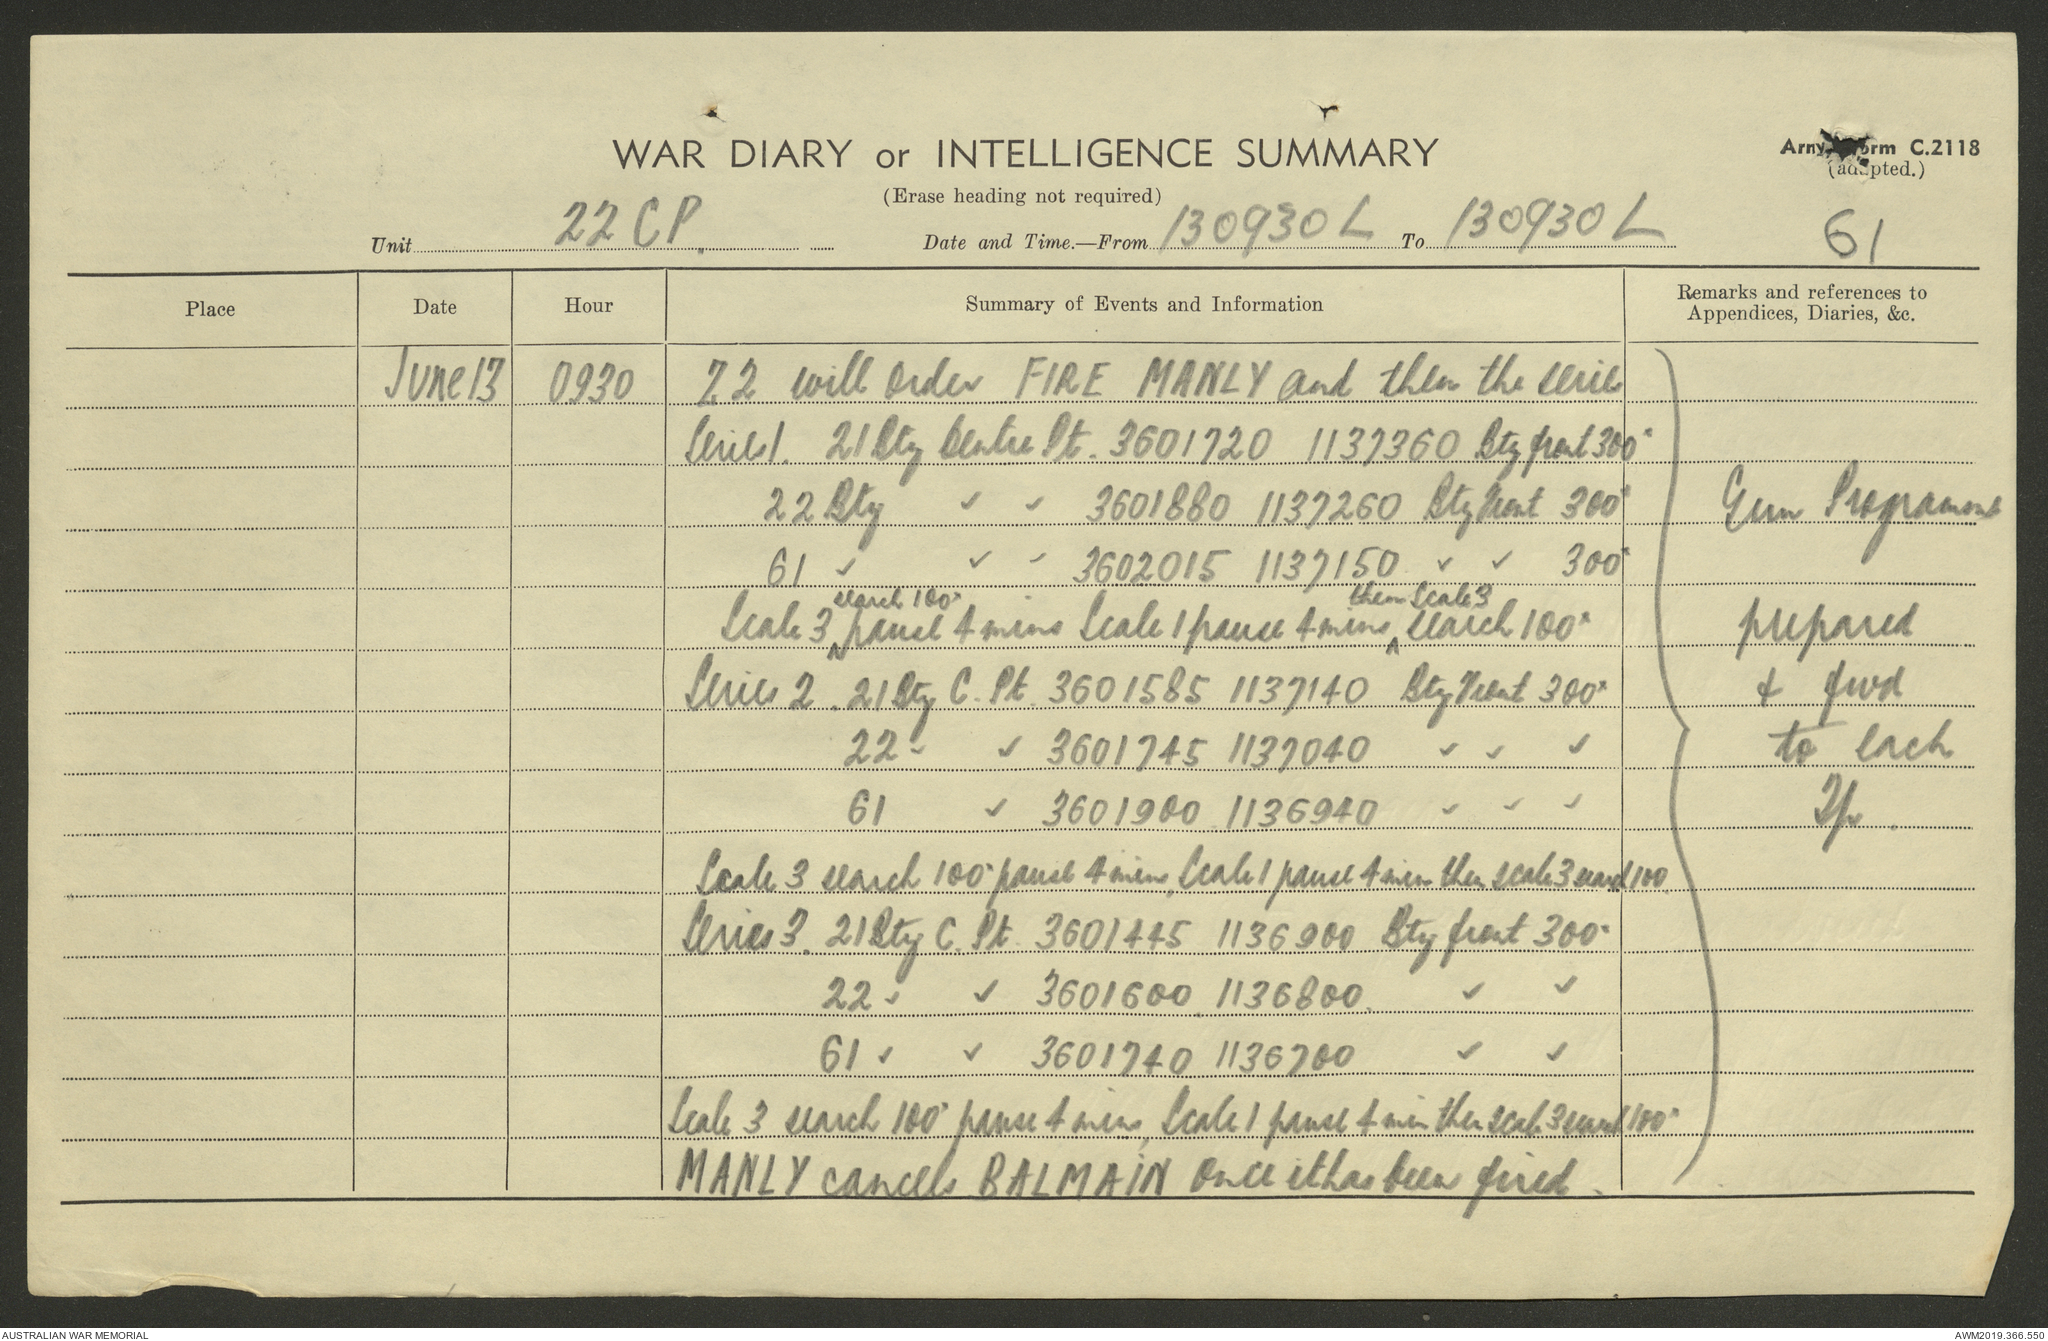 WAR DIARY or INTELLIGENCE SUMMARY
Army Form C.2118
(Erase heading not required)
(adapted.)
Unit 22 C P. Date and Time.—From 130930L To 130930L
61
Place Date Hour Summary of Events and Information Remarks and references to
Appendices, Diaries, &c.
June 13 0930 Z2 will order FIRE MANLY and then the series
Series 1. 21 Bty Centre Pt. 3601720 1137360 Bty front 300ˣ
22 Bty " " 3601880 1137260 Bty front 300ˣ Gun Programme
61 " " " 3602015 1137150 " " 300ˣ
search 100ˣ then scale 3
Scale 3 ^ pause 4 mins Scale 1 pause 4 mins ^ search 100ˣ prepared
Series 2. 21 Bty C. Pt. 3601585 1137140 Bty front 300ˣ & fwd
22 " " 3601745 1137040 " " " to each
61 " 3601900 1136940 " " " Tp.
Scale 3 search 100ˣ pause 4 mins, Scale 1 pause 4 mins then scale 3 search 100
Series 3. 21 Bty C. Pt. 3601445 1136900 Bty front 300ˣ
22 " " 3601600 1136800. " "
61 " " 3601740 1136700 " "
Scale 3 search 100ˣ pause 4 mins, Scale 1 pause 4 min then scale 3 search 100ˣ
MANLY cancels BALMAIN once it has been fired.
AUSTRALIAN WAR MEMORIAL
AWM2019.366.550